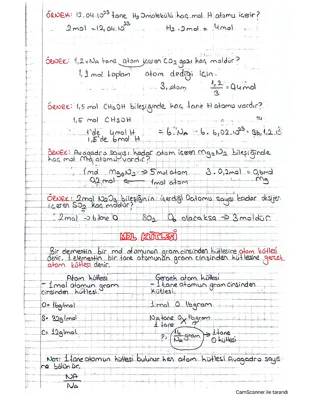 ÖRNEK: 12,04.10²³ tane H₂ molekülü kaç mol H atomu içerir?
2mol = 12,04.10²³ H₂.2mol = 4mol
ÖRNEK: 1,2.Na tane atom içeren CO₂ gazı kaç moldür?
1,2 mol toplam atom dediği için.
3. atom 1,2/3 = 0,4mol
ÖRNEK: 1,5 mol CH₃OH bileşiğinde kaç tane H atomu vardır?
1,5 mol CH₃OH
1'de 4mol H
1,5'de 6mol H = 6.Na = 6. 6,02.10²³ = 36,12.10
ÖRNEK: Avogadro sayısı kadar atom içeren Mg₃N₂ bileşiğinde
kaç mol Mg atomu vardır?
1md Mg₃N₂ → 5mol atom 3.0,2mol = 0,6md
0,2mol 1mol atom Mg
ÖRNEK: 2mol N₂O₃ bileşiğinin içerdiği O atomu sayısı kadar oksijen
içeren SO₂ kaç moldür?
2mol → 6 tane O SO₂ O₆ olacaksa → 3 moldür.
MOL KÜTLESİ
Bir elementin bir mol atomunun gram cinsinden kütlesine atom kütlesi
denir. 1 elementin bir tane atomunun gram cinsinden kütlesine gerçek
atom kütlesi denir.
Atom kütlesi Gerçek atom kütlesi
- 1mol atomun gram cinsinden kütlesi. - 1 tane atomun gram cinsinden kütlesi.
O = 16g/mol 1mol O 16gram
S = 32g/mol Na tane O 16gram
1 tane
C = 12g/mol 16/Na gram → 1 tane O kütlesi
Not: 1 tane atomun kütlesi bulunurken atom kütlesi Avogadro sayısı
na bölünür.
NA
Na
CamScanner ile tarandı